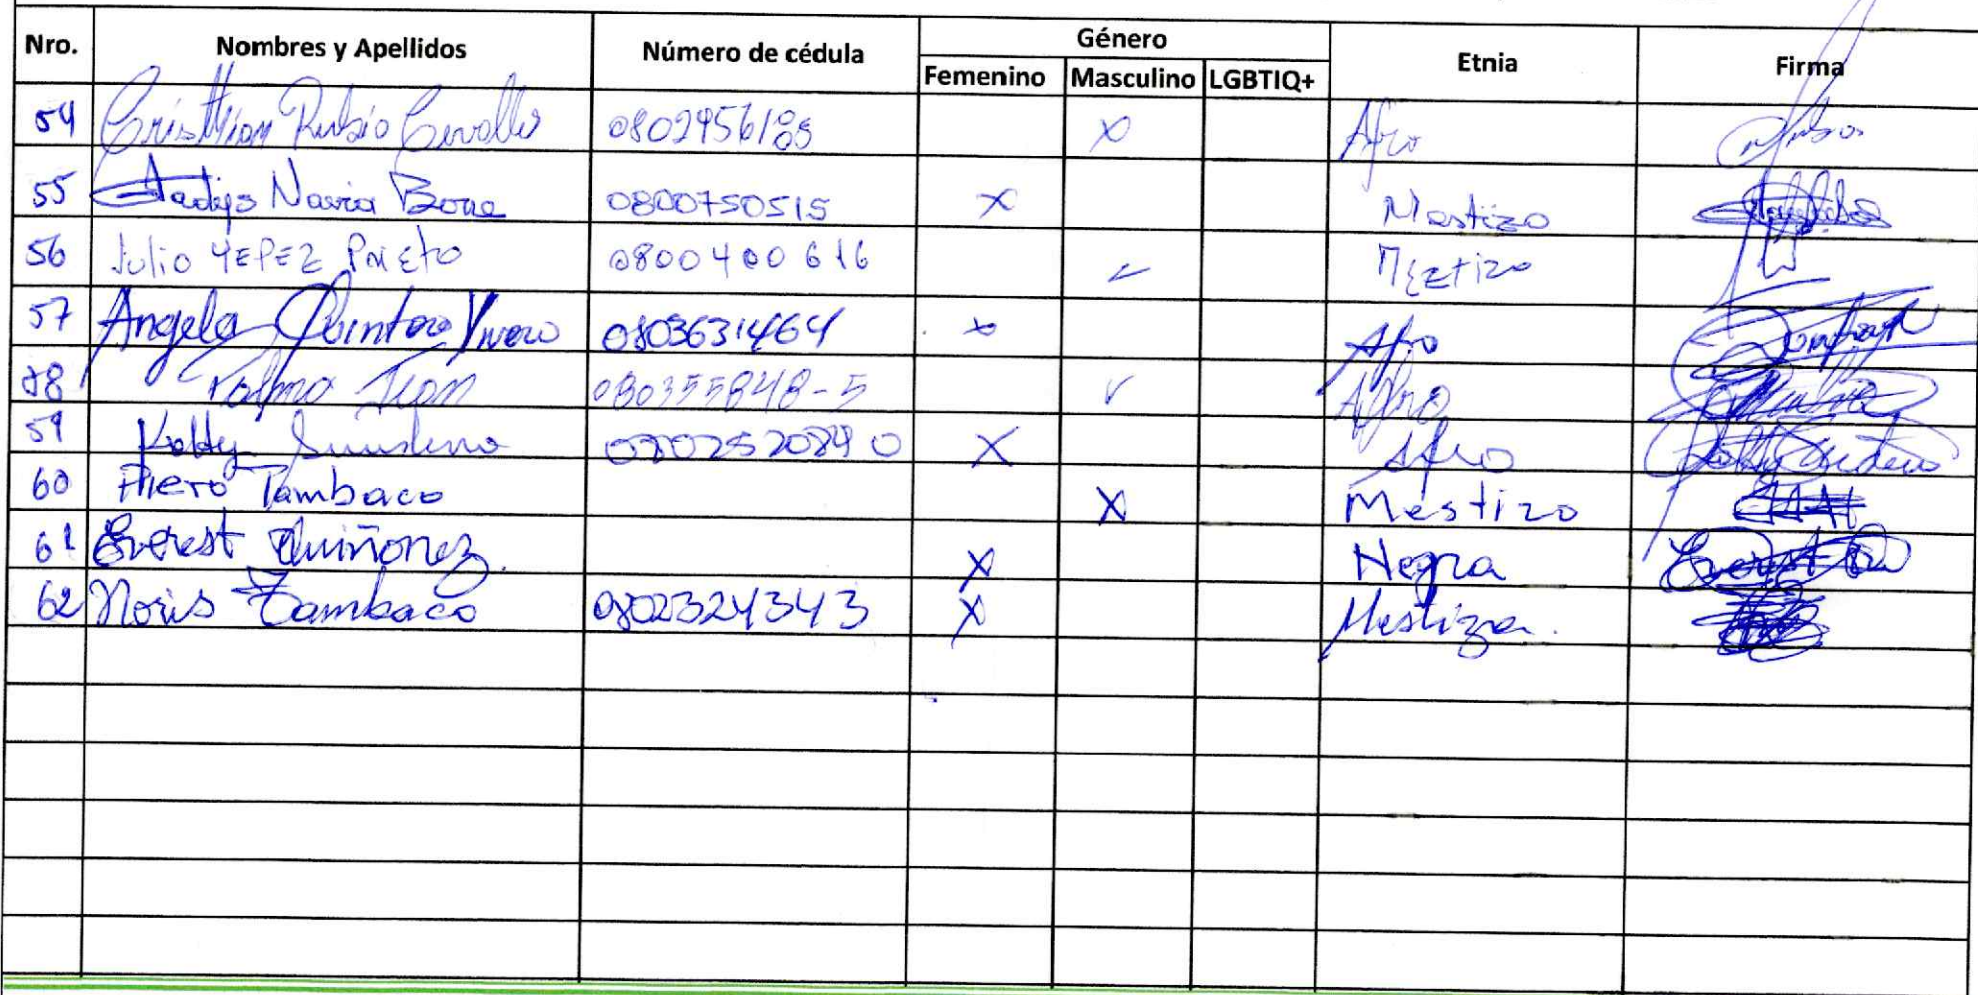 Género
Nro. Nombres y Apellidos Número de cédula Femenino Masculino LGBTIQ+ Etnia Firma
54 Cristtian Rubio Cevallos X Afro
55 Gladys Navia Bone 0800750515 X Mestizo
56 Julio YEPEZ PRIETO 0800400616 ✓ MEZtizo
57 Angela Quintero Vivero 0803631464 x Afro
58 Palma Jean 080355848-5 ✓ Afro
59 X Afro
60 Piero Tambaco X Mestizo
61 Everest Quiñonez. X Negra
62 Noris Tambaco 0802324343 X Mestiza.